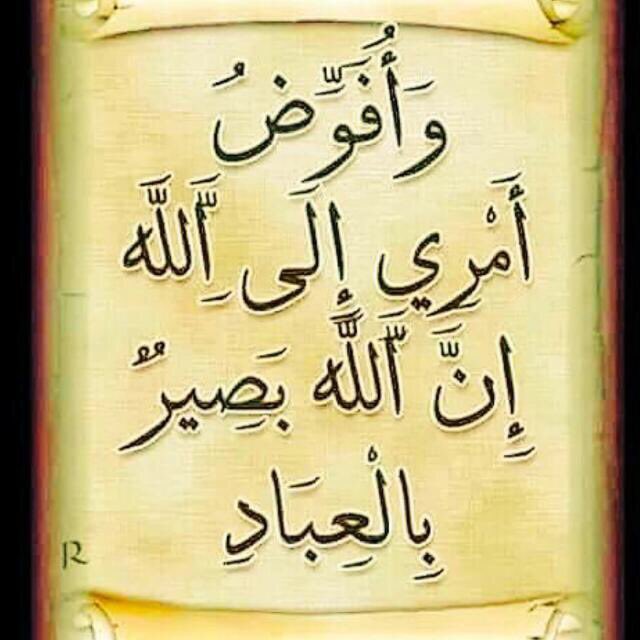 وَأُفَوِّضُ
أَمْرِي إِلَى اللَّهِ
إِنَّ اللَّهَ بَصِيرٌ
بِالْعِبَادِ
R